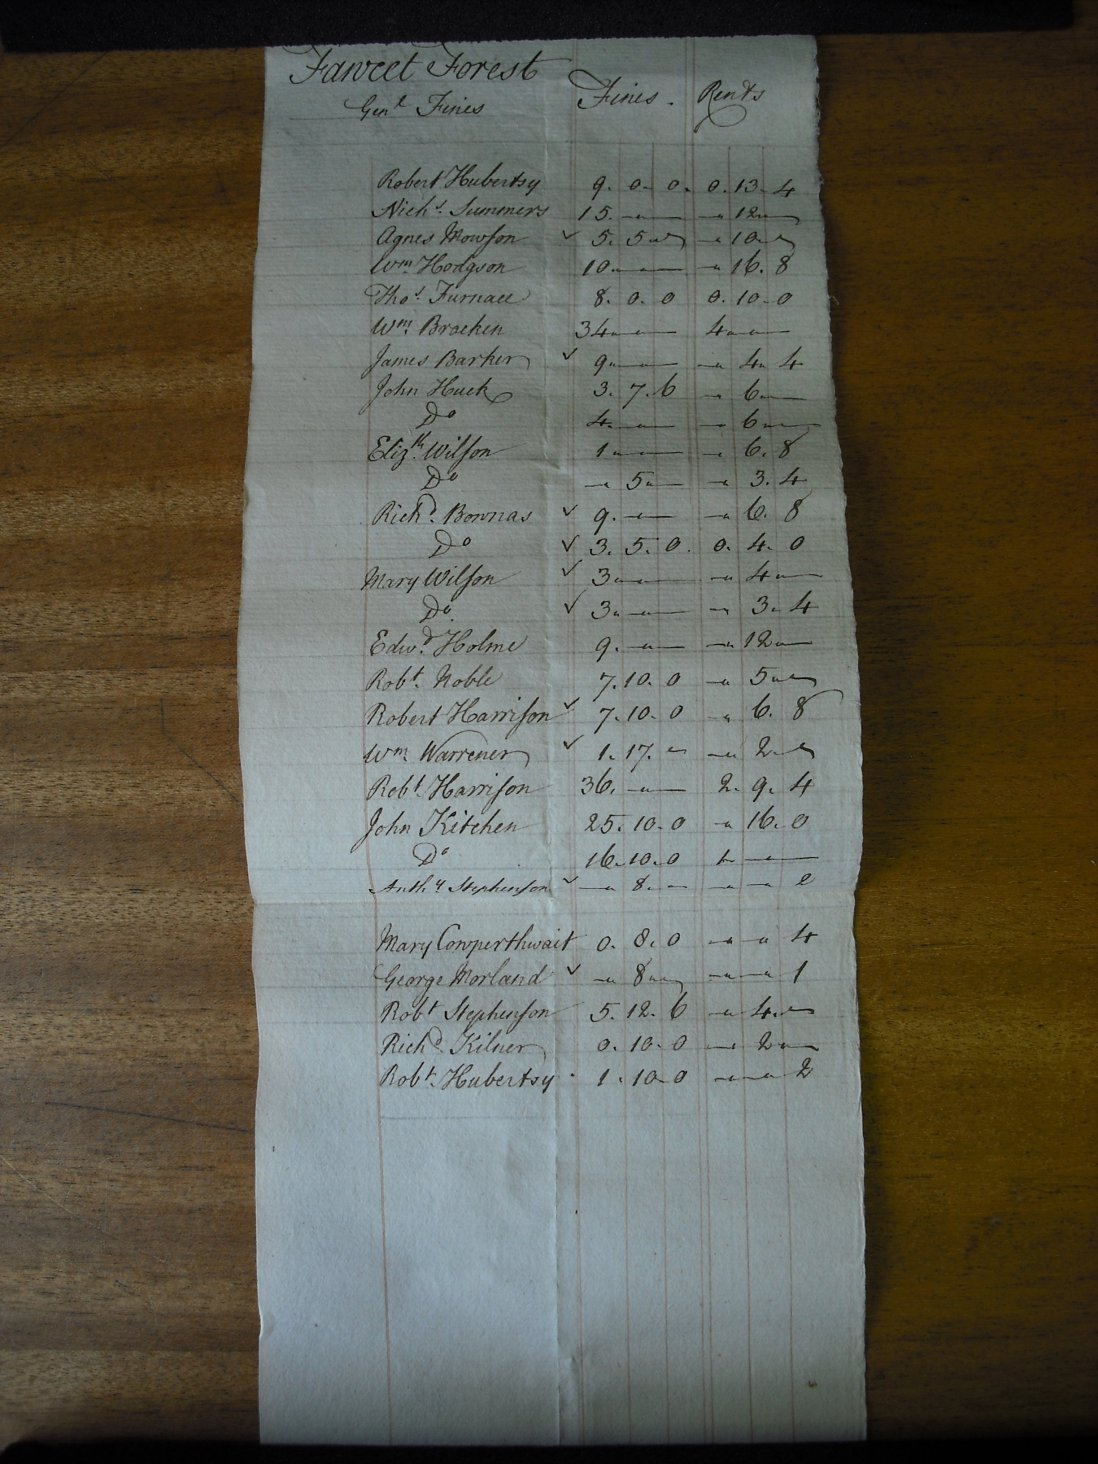 Fawcet Forest
Genl Fines Fines. Rents
Robert Hubertsy 9. 0. 0. 0. 13. 4
Nichs. Summers 15. - - - 12 -
Agnes Mowson ✓ 5. 5 - - 10 -
Wm Hodgson 10 - - - 16. 8
Thos. Furnace 8. 0. 0 0. 10. 0
Wm. Bracken 34 - - 4 - -
James Barker ✓ 9 - - - 4. 4
John Huck 3. 7. 6 - 6 -
Do 4 - - - 6 -
Elizth. Wilson 1 - - - 6. 8
Do - 5 - - 3. 4
Richd. Bownas ✓ 9. - - - 6. 8
Do ✓ 3. 5. 0. 0. 4. 0
Mary Wilson ✓ 3 - - - 4 -
Do. ✓ 3 - - - 3. 4
Edwd. Holme 9. - - - 12 -
Robt. Noble 7. 10. 0 - 5 -
Robert Harrison ✓ 7. 10. 0 - 6. 8
Wm. Warrener ✓ 1. 17. - - 2 -
Robt. Harrison 36. - - 2. 9. 4
John Kitchen 25. 10. 0 - 16. 0
Do 16. 10. 0 1 - -
Anthy. Stephenson ✓ - 8. - - -
Mary Cowperthwait 0. 8. 0 - - 4
George Morland ✓ - 8 - - - 1
Robt Stephenson 5. 12. 6 - 4 -
Richd. Kilner 0. 10. 0 - 2 -
Robt. Hubertsy 1. 10. 0 - - 2